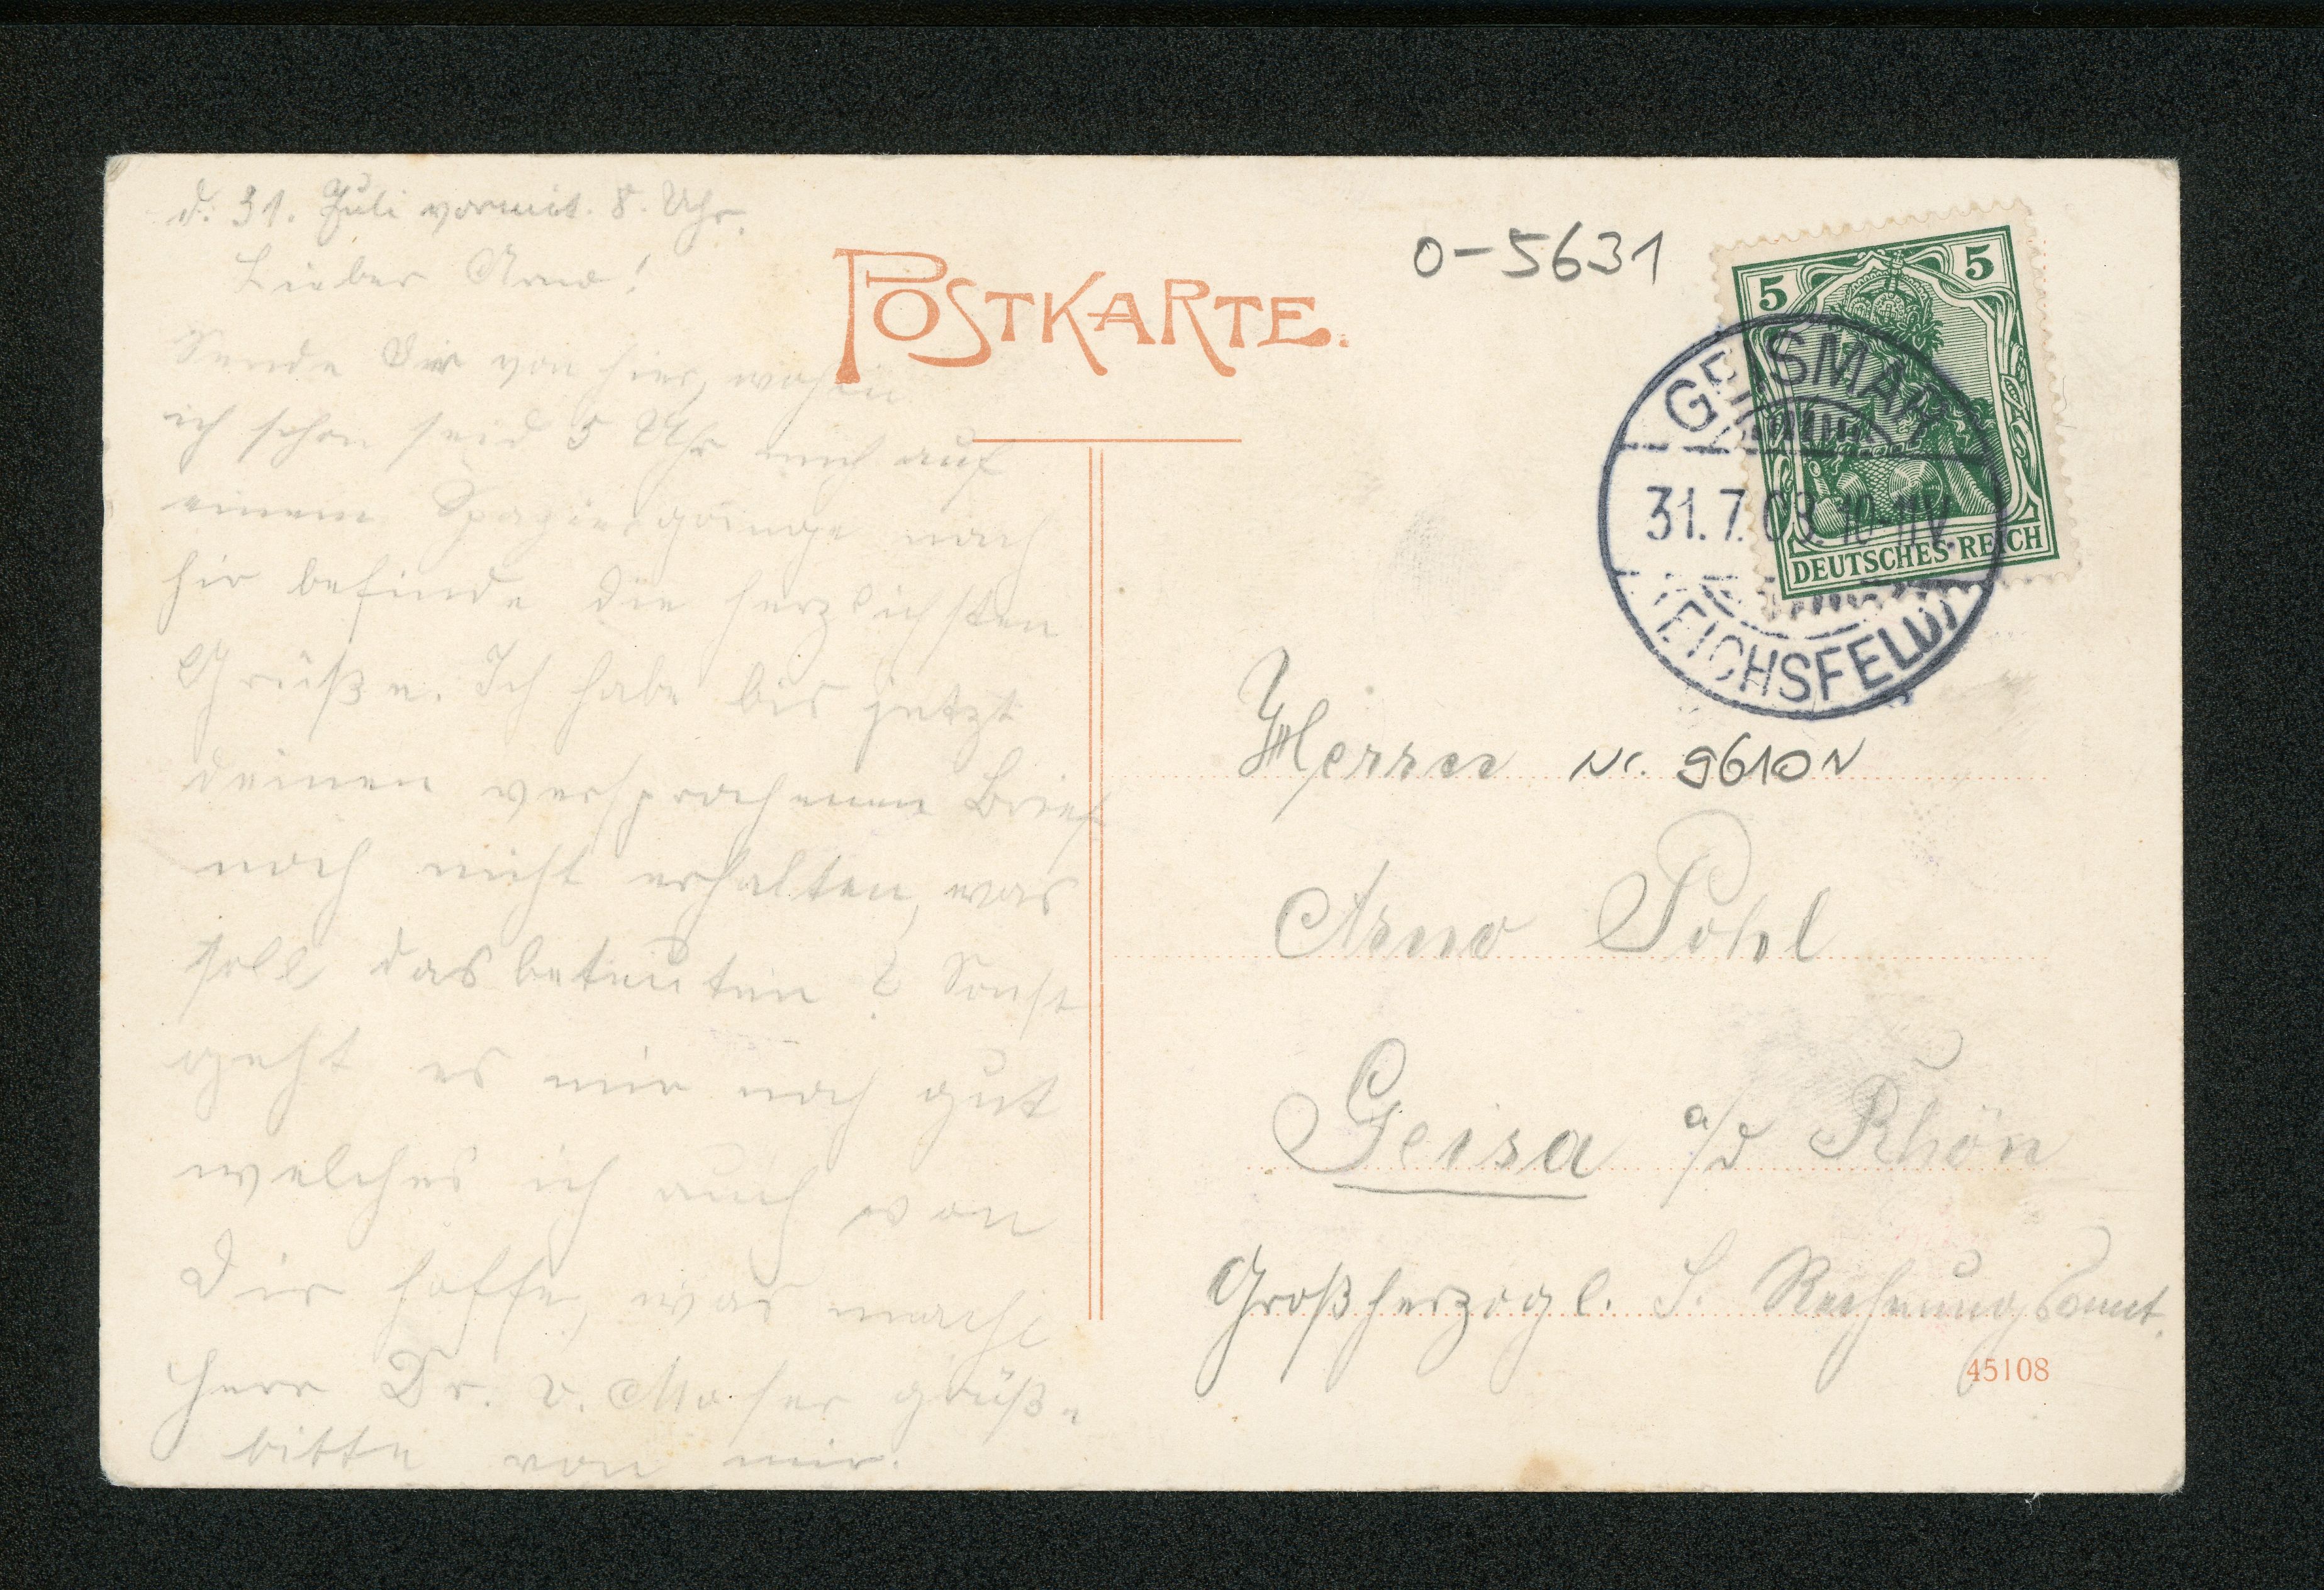 d. 31. Juli vormit. 8. Uhr.
Lieber Arno!
Sende Dir von hier, wohin
ich schon seid 5 Uhr mich auf
einem Spaziergange nach
hir befinde die herzlichsten
Grüße. Ich habe bis jetzt
deinen versprochenen Brief
noch nicht erhalten, was
soll das beteuten? Sonst
geht es mir noch gut
welches ich auch von
Dir hoffe, was macht
Herr Dr. v. Moser grüße
bitte von mir.
POSTKARTE.
0-5631
5 5
DEUTSCHES REICH
GEISMAR
31.7.09. 10-11V.
(EICHSFELD)
Herrn Nr. 9610N
Arno Pohl
Geisa a/d Rhön
Großherzogl. S. Rechnungsamt.
45108